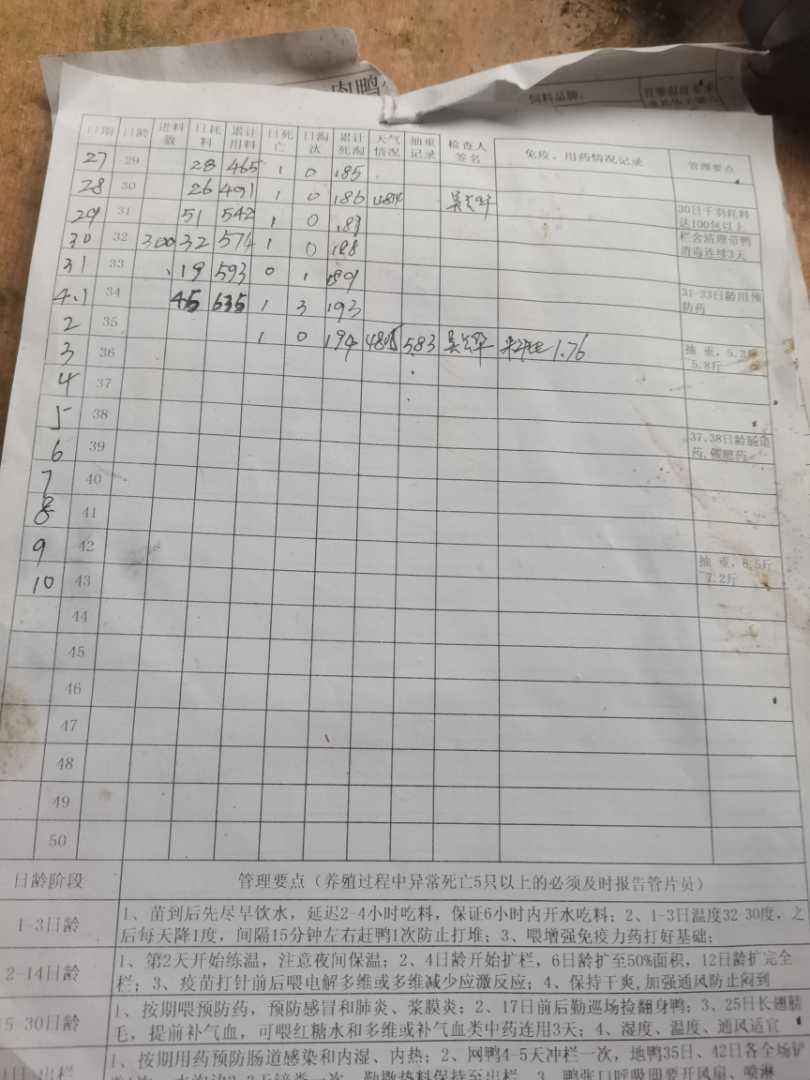 肉鸭
饲料品牌：
日期 日龄 进料数 日耗料 累计用料 日死亡 日淘汰 累计死淘 天气情况 抽重记录 检查人签名 免疫、用药情况记录 管理要点
27 29 28 465 1 0 185
28 30 26 491 1 0 186
29 31 51 542 1 0 30日千羽耗料达100包以上
30 32 300 32 574 1 0 188 栏舍清理带鸭消毒连续3天
31 33 19 593 0 1
4.1 34 45 635 1 3 193 31-33日龄用预防药
2 35 1 0 194 583 1.76
3 36 抽重，5.2斤 5.8斤
4 37
5 38
6 39 37.38日龄肠道药,
7 40
8 41
9 42
10 43 抽重，6.5斤 7.2斤
44
45
46
47
48
49
50
日龄阶段 管理要点（养殖过程中异常死亡5只以上的必须及时报告管片员）
1-3日龄 1、苗到后先尽早饮水，延迟2-4小时吃料，保证6小时内开水吃料；2、1-3日温度32-30度，之
后每天降1度，间隔15分钟左右赶鸭1次防止打堆；3、喂增强免疫力药打好基础；
2-14日龄 1、第2天开始练温，注意夜间保温；2、4日龄开始扩栏，6日龄扩至50%面积，12日龄扩完全
栏；3、疫苗打针前后喂电解多维或多维减少应激反应；4、保持干爽,加强通风防止闷到
5-30日龄 1、按期喂预防药，预防感冒和肺炎、浆膜炎；2、17日前后勤巡场捡翻身鸭；3、25日长翅膀
毛，提前补气血，可喂红糖水和多维或补气血类中药连用3天；4、湿度、温度、通风适宜
31日-出栏 1、按期用药预防肠道感染和内湿、内热；2、网鸭4-5天冲栏一次，地鸭35日、42日各全场铲